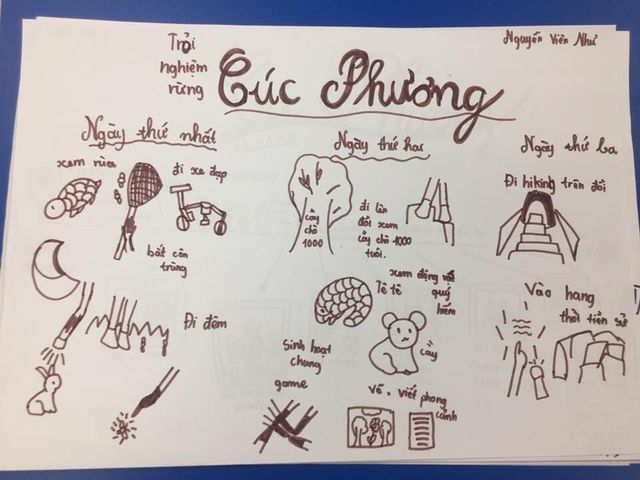 Trải
nghiệm
rừng
Cúc Phương
Nguyễn Viên Như
Ngày thứ nhất
xem rùa
đi xe đạp
bắt côn
trùng
Đi đêm
Ngày thứ hai
cây
chò
1000
đi lên
đồi xem
cây chò 1000
tuổi.
xem động vật
quý
hiếm
Tê tê
cầy
sinh hoạt
chung
game
Vẽ - viết phong
cảnh
Ngày thứ ba
Đi hiking trên đồi
Vào hang
thời tiền sử